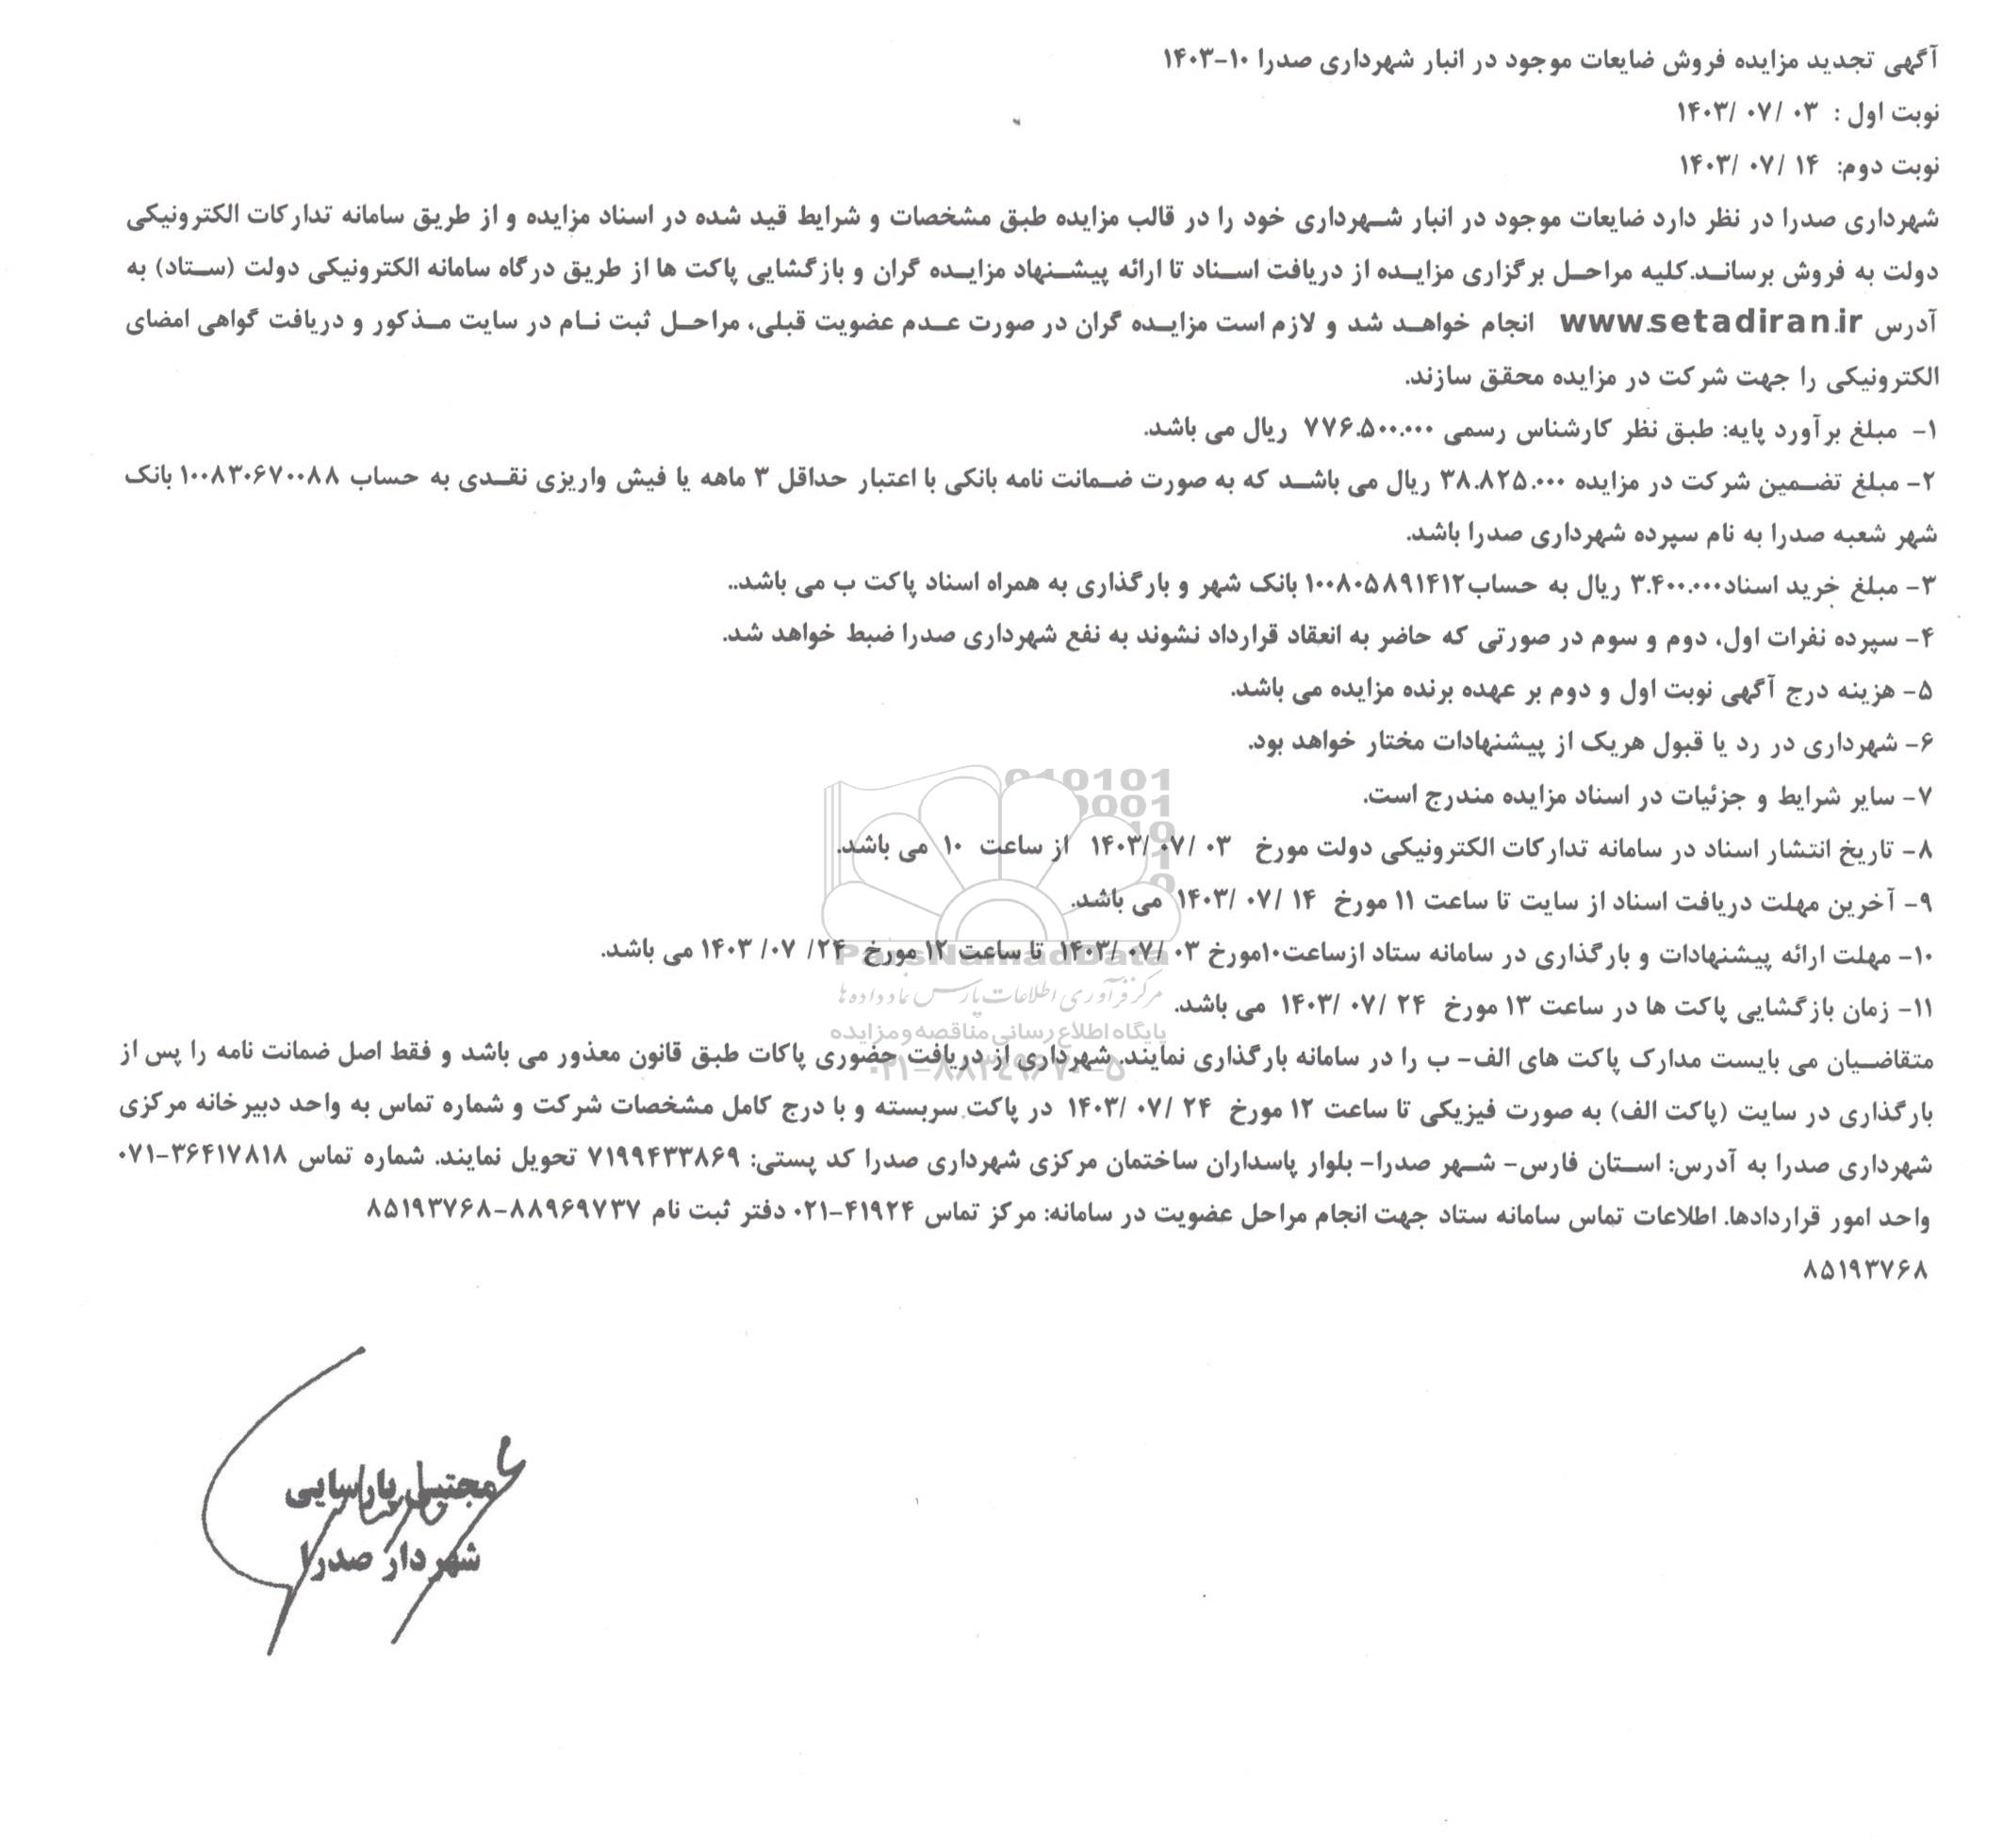 آگهی تجدید مزایده فروش ضایعات موجود در انبار شهرداری صدرا ۱۰-۱۴۰۳
نوبت اول : ۰۳ /۰۷ /۱۴۰۳
نوبت دوم: ۱۴ /۰۷ /۱۴۰۳
شهرداری صدرا در نظر دارد ضایعات موجود در انبار شهرداری خود را در قالب مزایده طبق مشخصات و شرایط قید شده در اسناد مزایده و از طریق سامانه تدارکات الکترونیکی
دولت به فروش برساند.کلیه مراحل برگزاری مزایده از دریافت اسناد تا ارائه پیشنهاد مزایده گران و بازگشایی پاکت ها از طریق درگاه سامانه الکترونیکی دولت (ستاد) به
آدرس www.setadiran.ir انجام خواهد شد و لازم است مزایده گران در صورت عدم عضویت قبلی، مراحل ثبت نام در سایت مذکور و دریافت گواهی امضای
الکترونیکی را جهت شرکت در مزایده محقق سازند.
۱- مبلغ برآورد پایه: طبق نظر کارشناس رسمی ۷۷۶.۵۰۰.۰۰۰ ریال می باشد.
۲- مبلغ تضمین شرکت در مزایده ۳۸.۸۲۵.۰۰۰ ریال می باشد که به صورت ضمانت نامه بانکی با اعتبار حداقل ۳ ماهه یا فیش واریزی نقدی به حساب ۱۰۰۸۳۰۶۷۰۰۸۸ بانک
شهر شعبه صدرا به نام سپرده شهرداری صدرا باشد.
۳- مبلغ خرید اسناد۳.۴۰۰.۰۰۰ ریال به حساب۱۰۰۸۰۵۸۹۱۴۱۲ بانک شهر و بارگذاری به همراه اسناد پاکت ب می باشد..
۴- سپرده نفرات اول، دوم و سوم در صورتی که حاضر به انعقاد قرارداد نشوند به نفع شهرداری صدرا ضبط خواهد شد.
۵- هزینه درج آگهی نوبت اول و دوم بر عهده برنده مزایده می باشد.
۶- شهرداری در رد یا قبول هریک از پیشنهادات مختار خواهد بود.
۷- سایر شرایط و جزئیات در اسناد مزایده مندرج است.
۸- تاریخ انتشار اسناد در سامانه تدارکات الکترونیکی دولت مورخ ۰۳ /۰۷ /۱۴۰۳ از ساعت ۱۰ می باشد.
۹- آخرین مهلت دریافت اسناد از سایت تا ساعت ۱۱ مورخ ۱۴ /۰۷ /۱۴۰۳ می باشد.
۱۰- مهلت ارائه پیشنهادات و بارگذاری در سامانه ستاد ازساعت۱۰مورخ ۰۳ /۰۷ /۱۴۰۳ تا ساعت ۱۲ مورخ ۲۴/ ۰۷/ ۱۴۰۳ می باشد.
ParsNamadData
مرکز فرآوری اطلاعات پارس نماد داده ها
۱۱- زمان بازگشایی پاکت ها در ساعت ۱۳ مورخ ۲۴ /۰۷ /۱۴۰۳ می باشد.
پایگاه اطلاع رسانی مناقصه و مزایده
متقاضیان می بایست مدارک پاکت های الف- ب را در سامانه بارگذاری نمایند. شهرداری از دریافت حضوری پاکات طبق قانون معذور می باشد و فقط اصل ضمانت نامه را پس از
۰۲۱-۸۸۳۴۹۶۷۰-۵
بارگذاری در سایت (پاکت الف) به صورت فیزیکی تا ساعت ۱۲ مورخ ۲۴ /۰۷ /۱۴۰۳ در پاکت سربسته و با درج کامل مشخصات شرکت و شماره تماس به واحد دبیرخانه مرکزی
شهرداری صدرا به آدرس: استان فارس- شهر صدرا- بلوار پاسداران ساختمان مرکزی شهرداری صدرا کد پستی: ۷۱۹۹۴۳۳۸۶۹ تحویل نمایند. شماره تماس ۳۶۴۱۷۸۱۸-۰۷۱
واحد امور قراردادها. اطلاعات تماس سامانه ستاد جهت انجام مراحل عضویت در سامانه: مرکز تماس ۴۱۹۲۴-۰۲۱ دفتر ثبت نام ۸۸۹۶۹۷۳۷-۸۵۱۹۳۷۶۸
۸۵۱۹۳۷۶۸
مجتبی پارسایی
شهردار صدرا